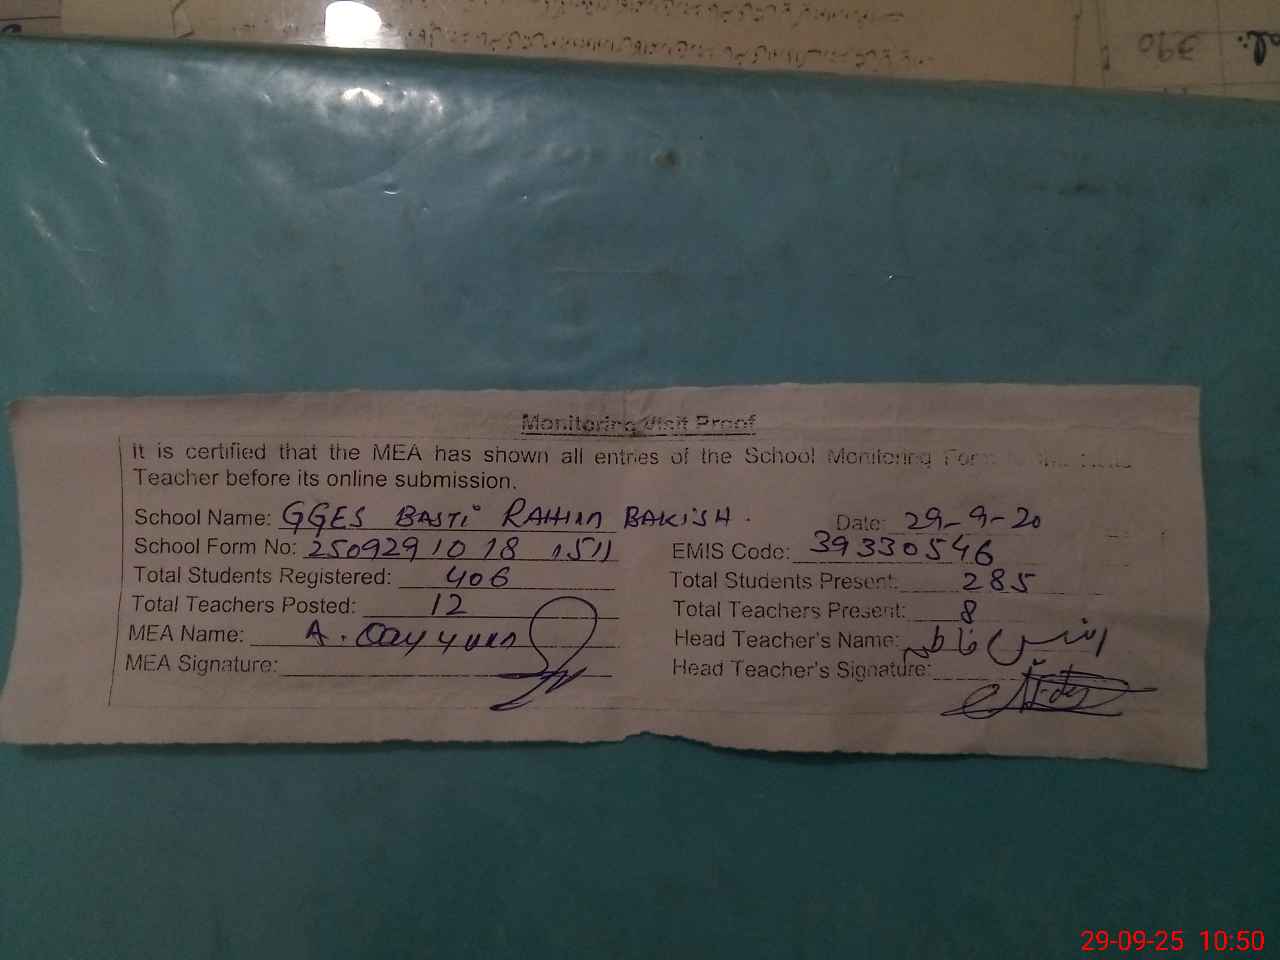 Monitoring Visit Proof
It is certified that the MEA has shown all entries of the School Monitoring Form
Teacher before its online submission.
School Name: GGES BASTI RAHIM BAKISH. Date: 29-9-20
School Form No: 250929 10 18 1511 EMIS Code: 39330546
Total Students Registered: 406 Total Students Present: 285
Total Teachers Posted: 12 Total Teachers Present: 8
MEA Name: A. Qayyum Head Teacher's Name:
MEA Signature: Head Teacher's Signature:
29-09-25 10:50